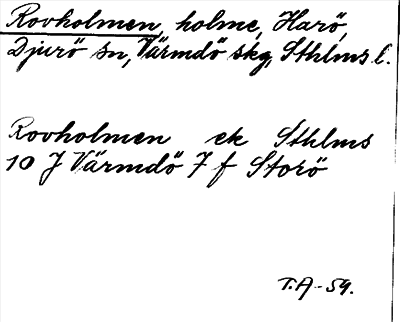 Rovholmen, holme, Harö,
Djurö sn, Värmdö skg, Sthlms l.
Rovholmen ek Sthlms
10 J Värmdö 7 f Storö
T.A-59.